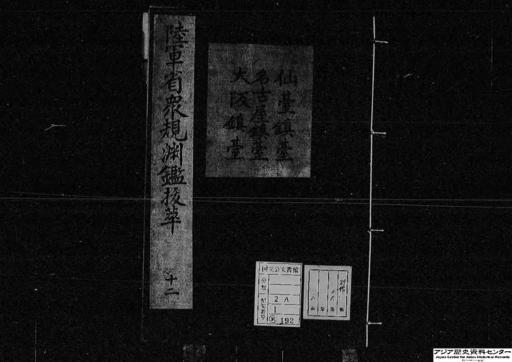 陸軍省衆規渕鑑抜萃
十二
仙臺鎮臺
名古屋鎮臺
大阪鎮臺
国立公文書館
分類
配架番号
2 A
1
192
アジア歴史資料センター
Japan Center for Asian Historical Records